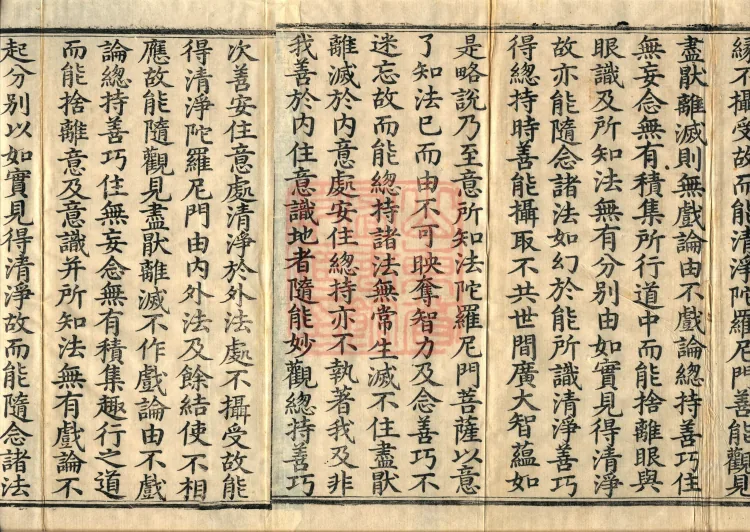 緣不攝受故而能清淨陀羅尼門善能觀見
盡猒離滅則無戲論由不戲論總持善巧住
無妄念無有積集所行道中而能捨離眼與
眼識及所知法無有分別由如實見得清淨
故亦能隨念諸法如幻於能所識清淨善巧
得總持時善能攝取不共世間廣大智蘊如
是略說乃至意所知法陀羅尼門菩薩以意
了知法已而由不可映奪智力及念善巧不
迷忘故而能總持諸法無常生滅不住盡猒
離滅於內意處安住總持亦不執著我及非
我善於內住意識地者隨能妙觀總持善巧
次善安住意處清淨於外法處不攝受故能
得清淨陀羅尼門由內外法及餘結使不相
應故能隨觀見盡猒離滅不作戲論由不戲
論總持善巧住無妄念無有積集趣行之道
而能捨離意及意識并所知法無有戲論不
起分別以如實見得清淨故而能隨念諸法